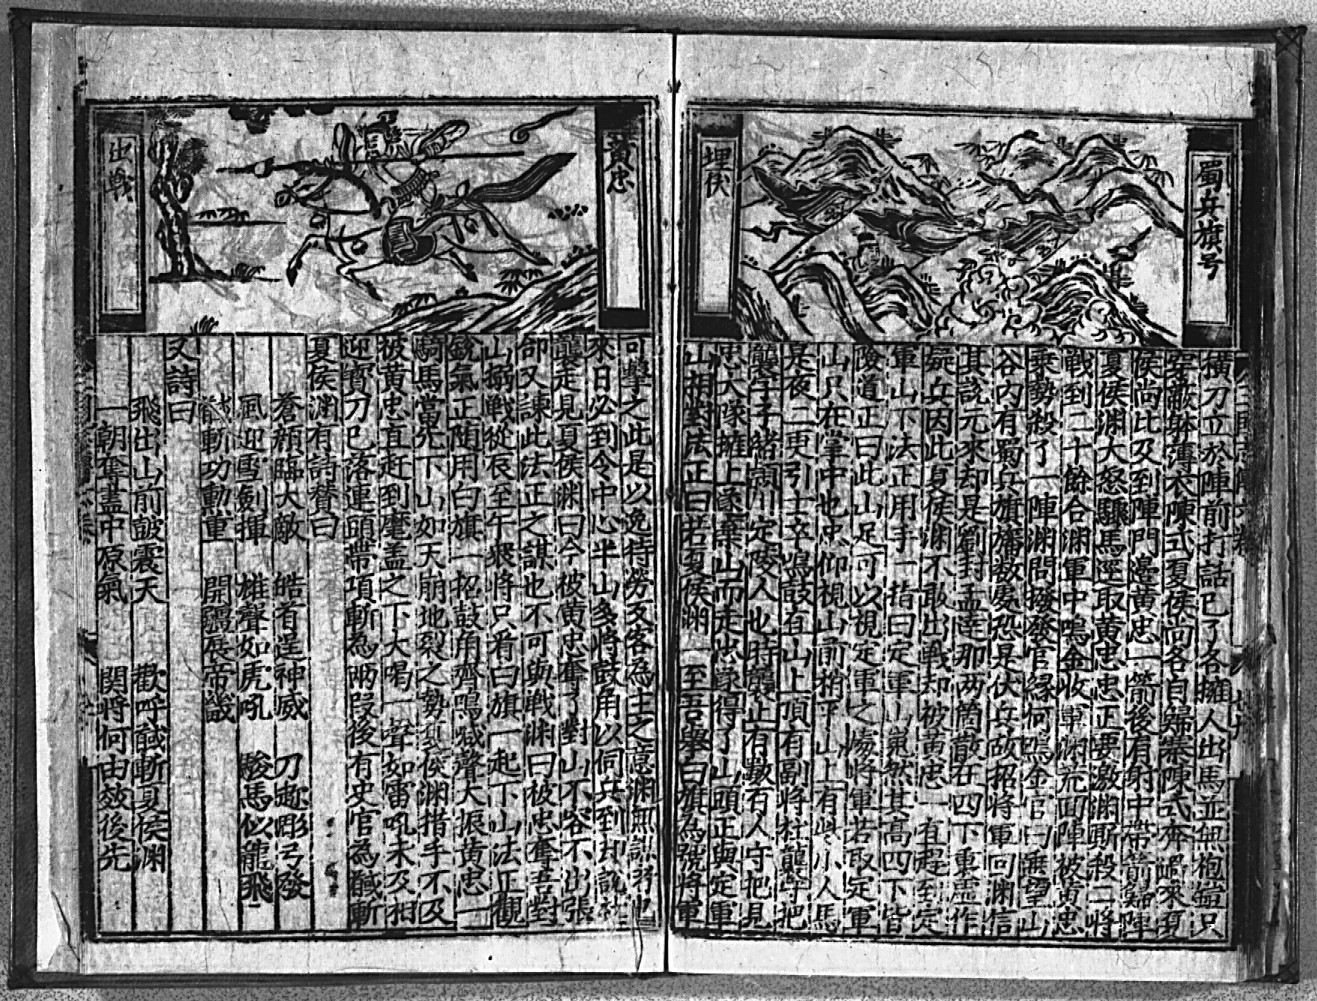 蜀兵旗号
埋伏
橫刀立於陣前打話已了各擁人出馬並無袍鎧只
穿蔽躬薄衣陳式夏侯尚各自歸寨陳式奔過來夏
侯尚比及到陣門邊黃忠一箭後有射中帶箭歸陣
夏侯渊大怒驟馬逕取黃忠忠正要激渊厮殺二將
戰到二十餘合渊軍中鳴金收軍渊充回陣被黃忠
乘勢殺了一陣渊問撥發官緣何鳴金官曰無望山
谷内有蜀兵旗旛数處恐是伏兵故招將軍回渊信
其說元來却是劉封孟達那两箇散在四下裏虛作
疑兵因此夏侯渊不敢出戰却被黃忠一有起到定
軍山下法正用手一指曰定軍山巢然其高四下皆
險道正曰此山足可以視定軍之場將軍若取定軍
山只在掌中也忠仰視山前稍平山上有些小人馬
是夜二更引士卒鳴鼓有山上頂有副將杜襲守把
襲字子緒潁川定陵人也時襲止有數百人守把見
忠大隊擁上遂棄山而走忠遂得了山頭正與定軍
山相對法正曰若夏侯渊 至吾舉白旗為號將軍
黃忠
出戰
可擊之此是以逸待勞反客為主之意渊
來日必到令中心半山多將鼓角以伺兵到
襲走見夏侯渊曰今被黃忠奪了對山不容不出張
郃又諫此法正之謀也不可與戰渊曰被忠奪吾對
山搦戰從辰至午衆將只看曰旗一起下山法正觀
銳氣正随用白旗一招鼓角齊鳴喊聲大振黃忠一
騎馬當先下山如天崩地裂之勢夏侯渊措手不及
被黃忠直赶到麾盖之下大喝一聲如雷吼未及相
迎寳刀已落連頭帶項斬為兩段後有史官為馘斬
夏侯渊有詩賛曰
蒼顏臨大敵 皓首逞神威 刀趂彫弓發
風迎雪劍揮 雄聲如虎吼 駿馬似龍飛
馘斬功勳重 開疆展帝畿
又詩曰
飛出山前皷震天 歡呼馘斬夏侯渊
一朝奪盡中原氣 関將何由效後先